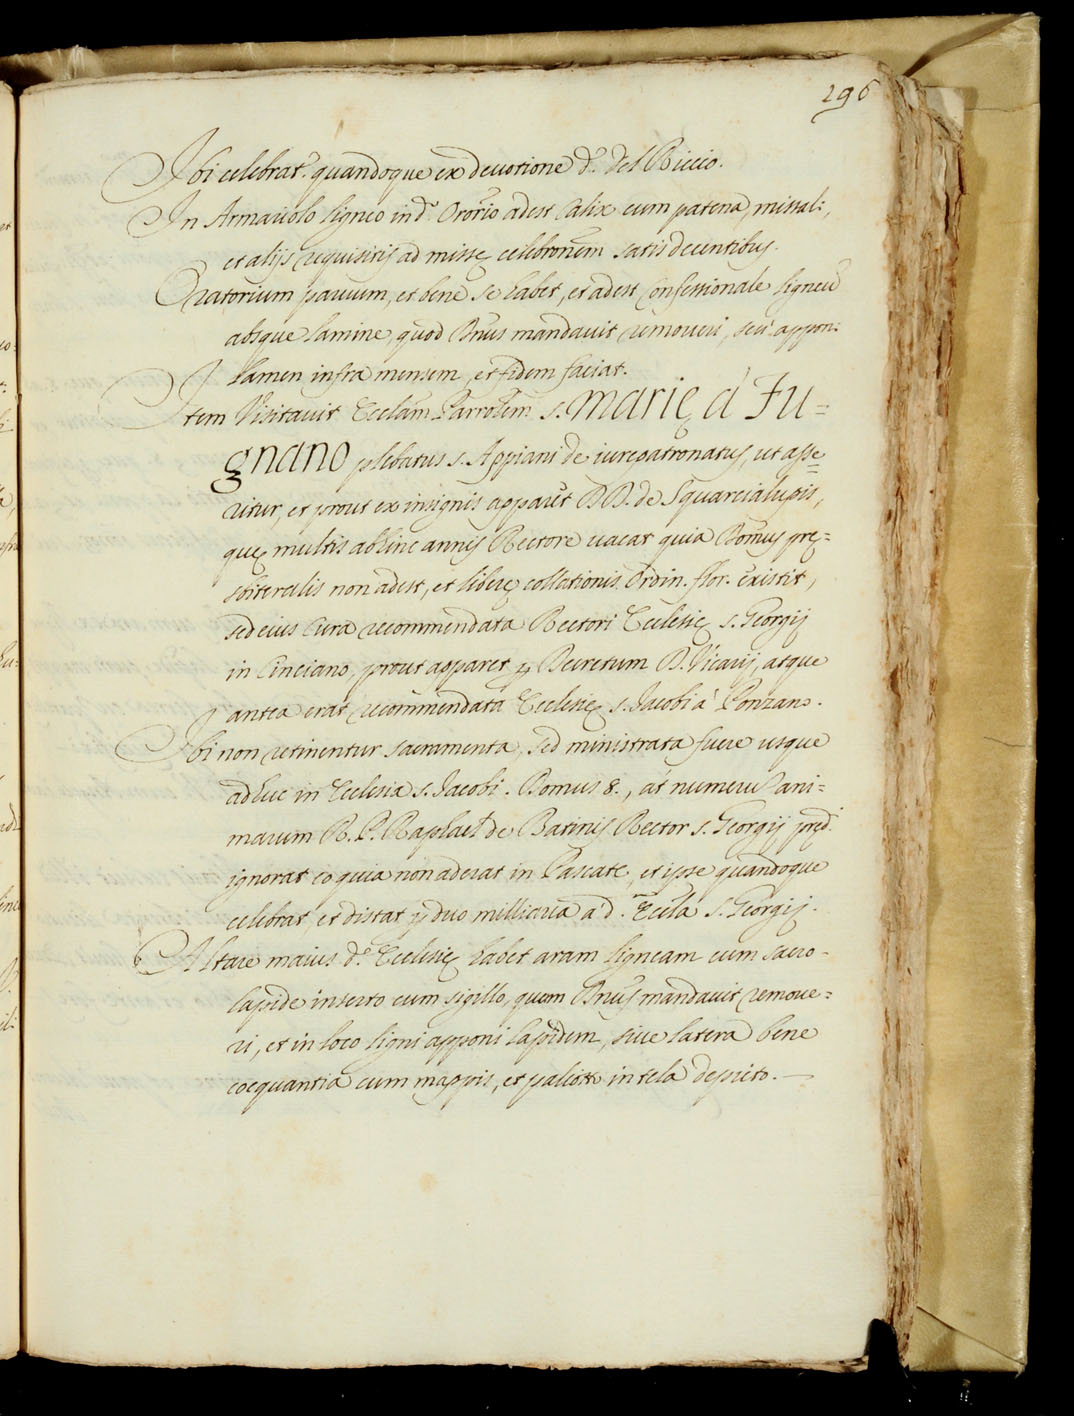 296
Ibi celebrat.r quandoque ex devotione d.i del Riccio.
In Armaiuolo ligneo in d.o Oror̃io adest Calix cum patena, missali,
et alijs requisitis ad missę celebron̄em satis decentibus.
Oratorium parvum, et bene se habet, et adest Confessionale ligneū
absque lamine, quod Dn̄us mandavit removeri, seu appon:
lamen infra mensem, et fidem faciat.
Item Visitavit Ecclām Parrolēm S. Marię à Fu=
gnano plebatus S. Appiani de iurepatronatus, ut asse=
ritur, et prout ex insignis apparet DD. de Squarcialupis,
quę multis abhinc annis Rectore vacat quia Domus prę=
sbiteralis non adest, et liberę collationis Ordin. flor. existit,
sed eius Cura recommendata Rectori Ecclesię S. Georgij
in Cinciano, prout apparet ꝑ Decretum D. Vicarij, atque
antea erat recommendata Ecclesię S. Jacobi à Ponzano.
Ibi non retinentur sacramenta, sed ministrata fuere usque
adhuc in Ecclesia S. Jacobi. Domus 8., at numerū ani=
marum R. P. Raphael de Batinis Rector S. Georgij pręd.i
ignorat eo quia non aderat in Pascate, et ipse quandoque
celebrat, et distat ꝑ duo milliaria a d. Ecclā S. Georgij.
Altare maius d.ę Ecclesię habet aram ligneam cum sacro
lapide inserto cum sigillo, quam Dn̄us mandavit remove=
ri, et in loco ligni apponi lapidem, sive latera bene
coequantia cum mappis, et paliotto in tela depicto.